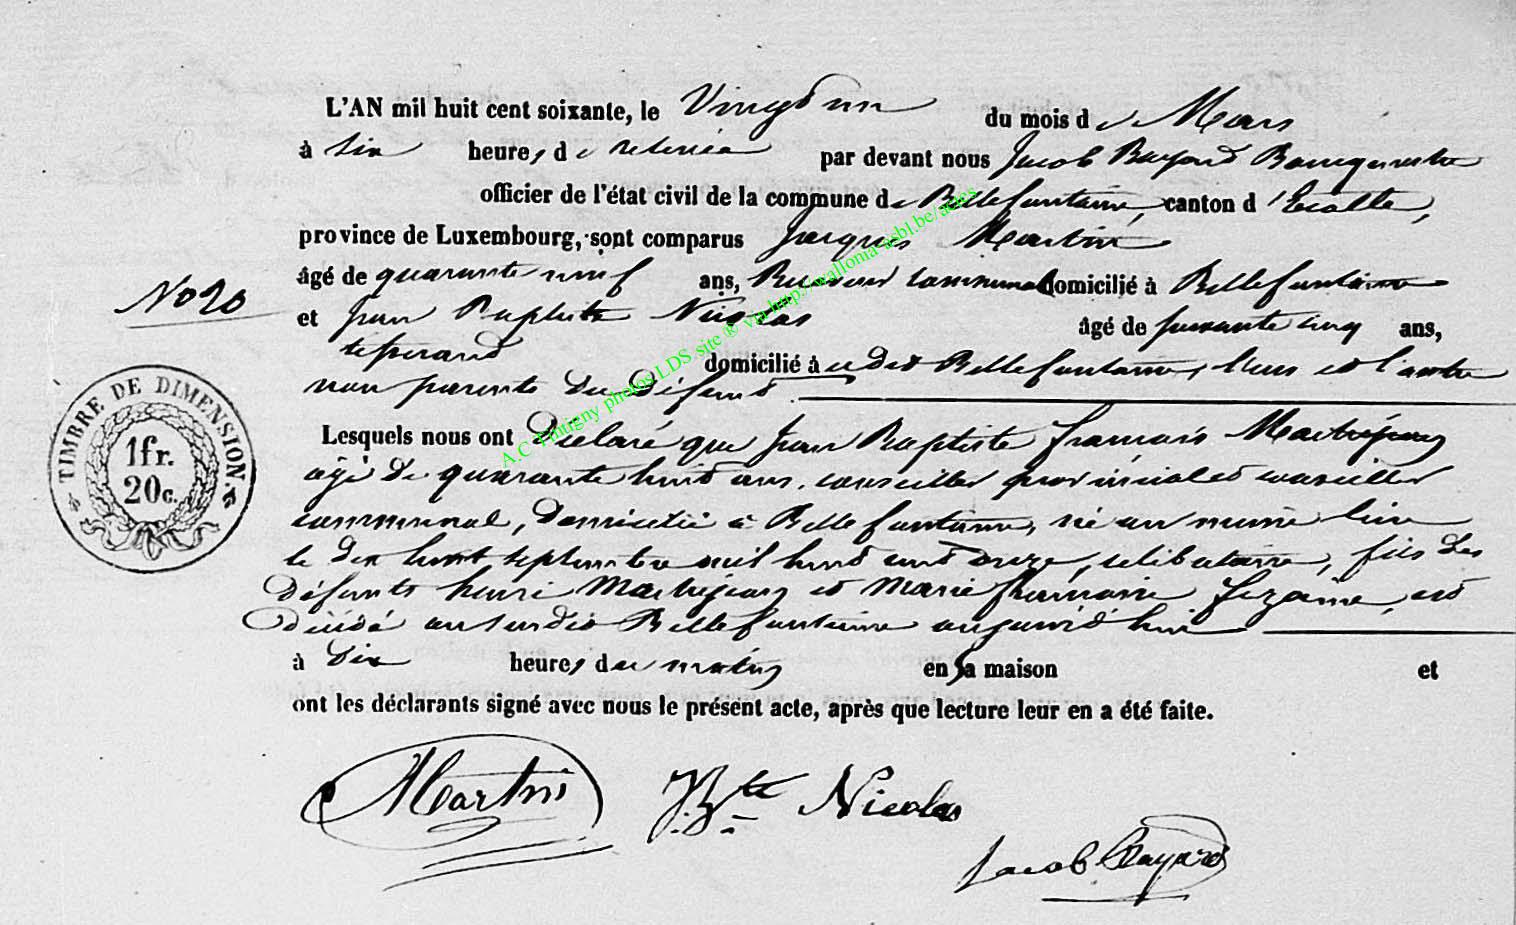 L'AN mil huit cent soixante, le Vingt un du mois de Mars
à six heures de relevée par devant nous Jacob Bayard Bourgmestre
officier de l'état civil de la commune de Bellefontaine, canton d'Etalle,
province de Luxembourg, sont comparus Jacques Martin
âgé de quarante neuf ans, Receveur communal domicilié à Bellefontaine
No 20
et Jean Baptiste Nicolas âgé de soixante cinq ans,
tisserand domicilié à au dit Bellefontaine, l'un et l'autre
non parents du défunt.
Lesquels nous ont déclaré que Jean Baptiste francois
âgé de quarante huit ans, conseiller provincial et conseiller
communal, domicilié à Bellefontaine, né au même lieu
le dix huit septembre mil huit cent onze, célibataire, fils des
défunts henri et Marie est
décédé au susdit Bellefontaine aujourd'hui
à dix heures du matin en sa maison et
ont les déclarants signé avec nous le présent acte, après que lecture leur en a été faite.
TIMBRE DE DIMENSION.
1fr.
20c.
Martin JBte Nicolas
Jacob Bayard
A.C Tintigny photos LDS site ® via http://wallonia-asbl.be/actes